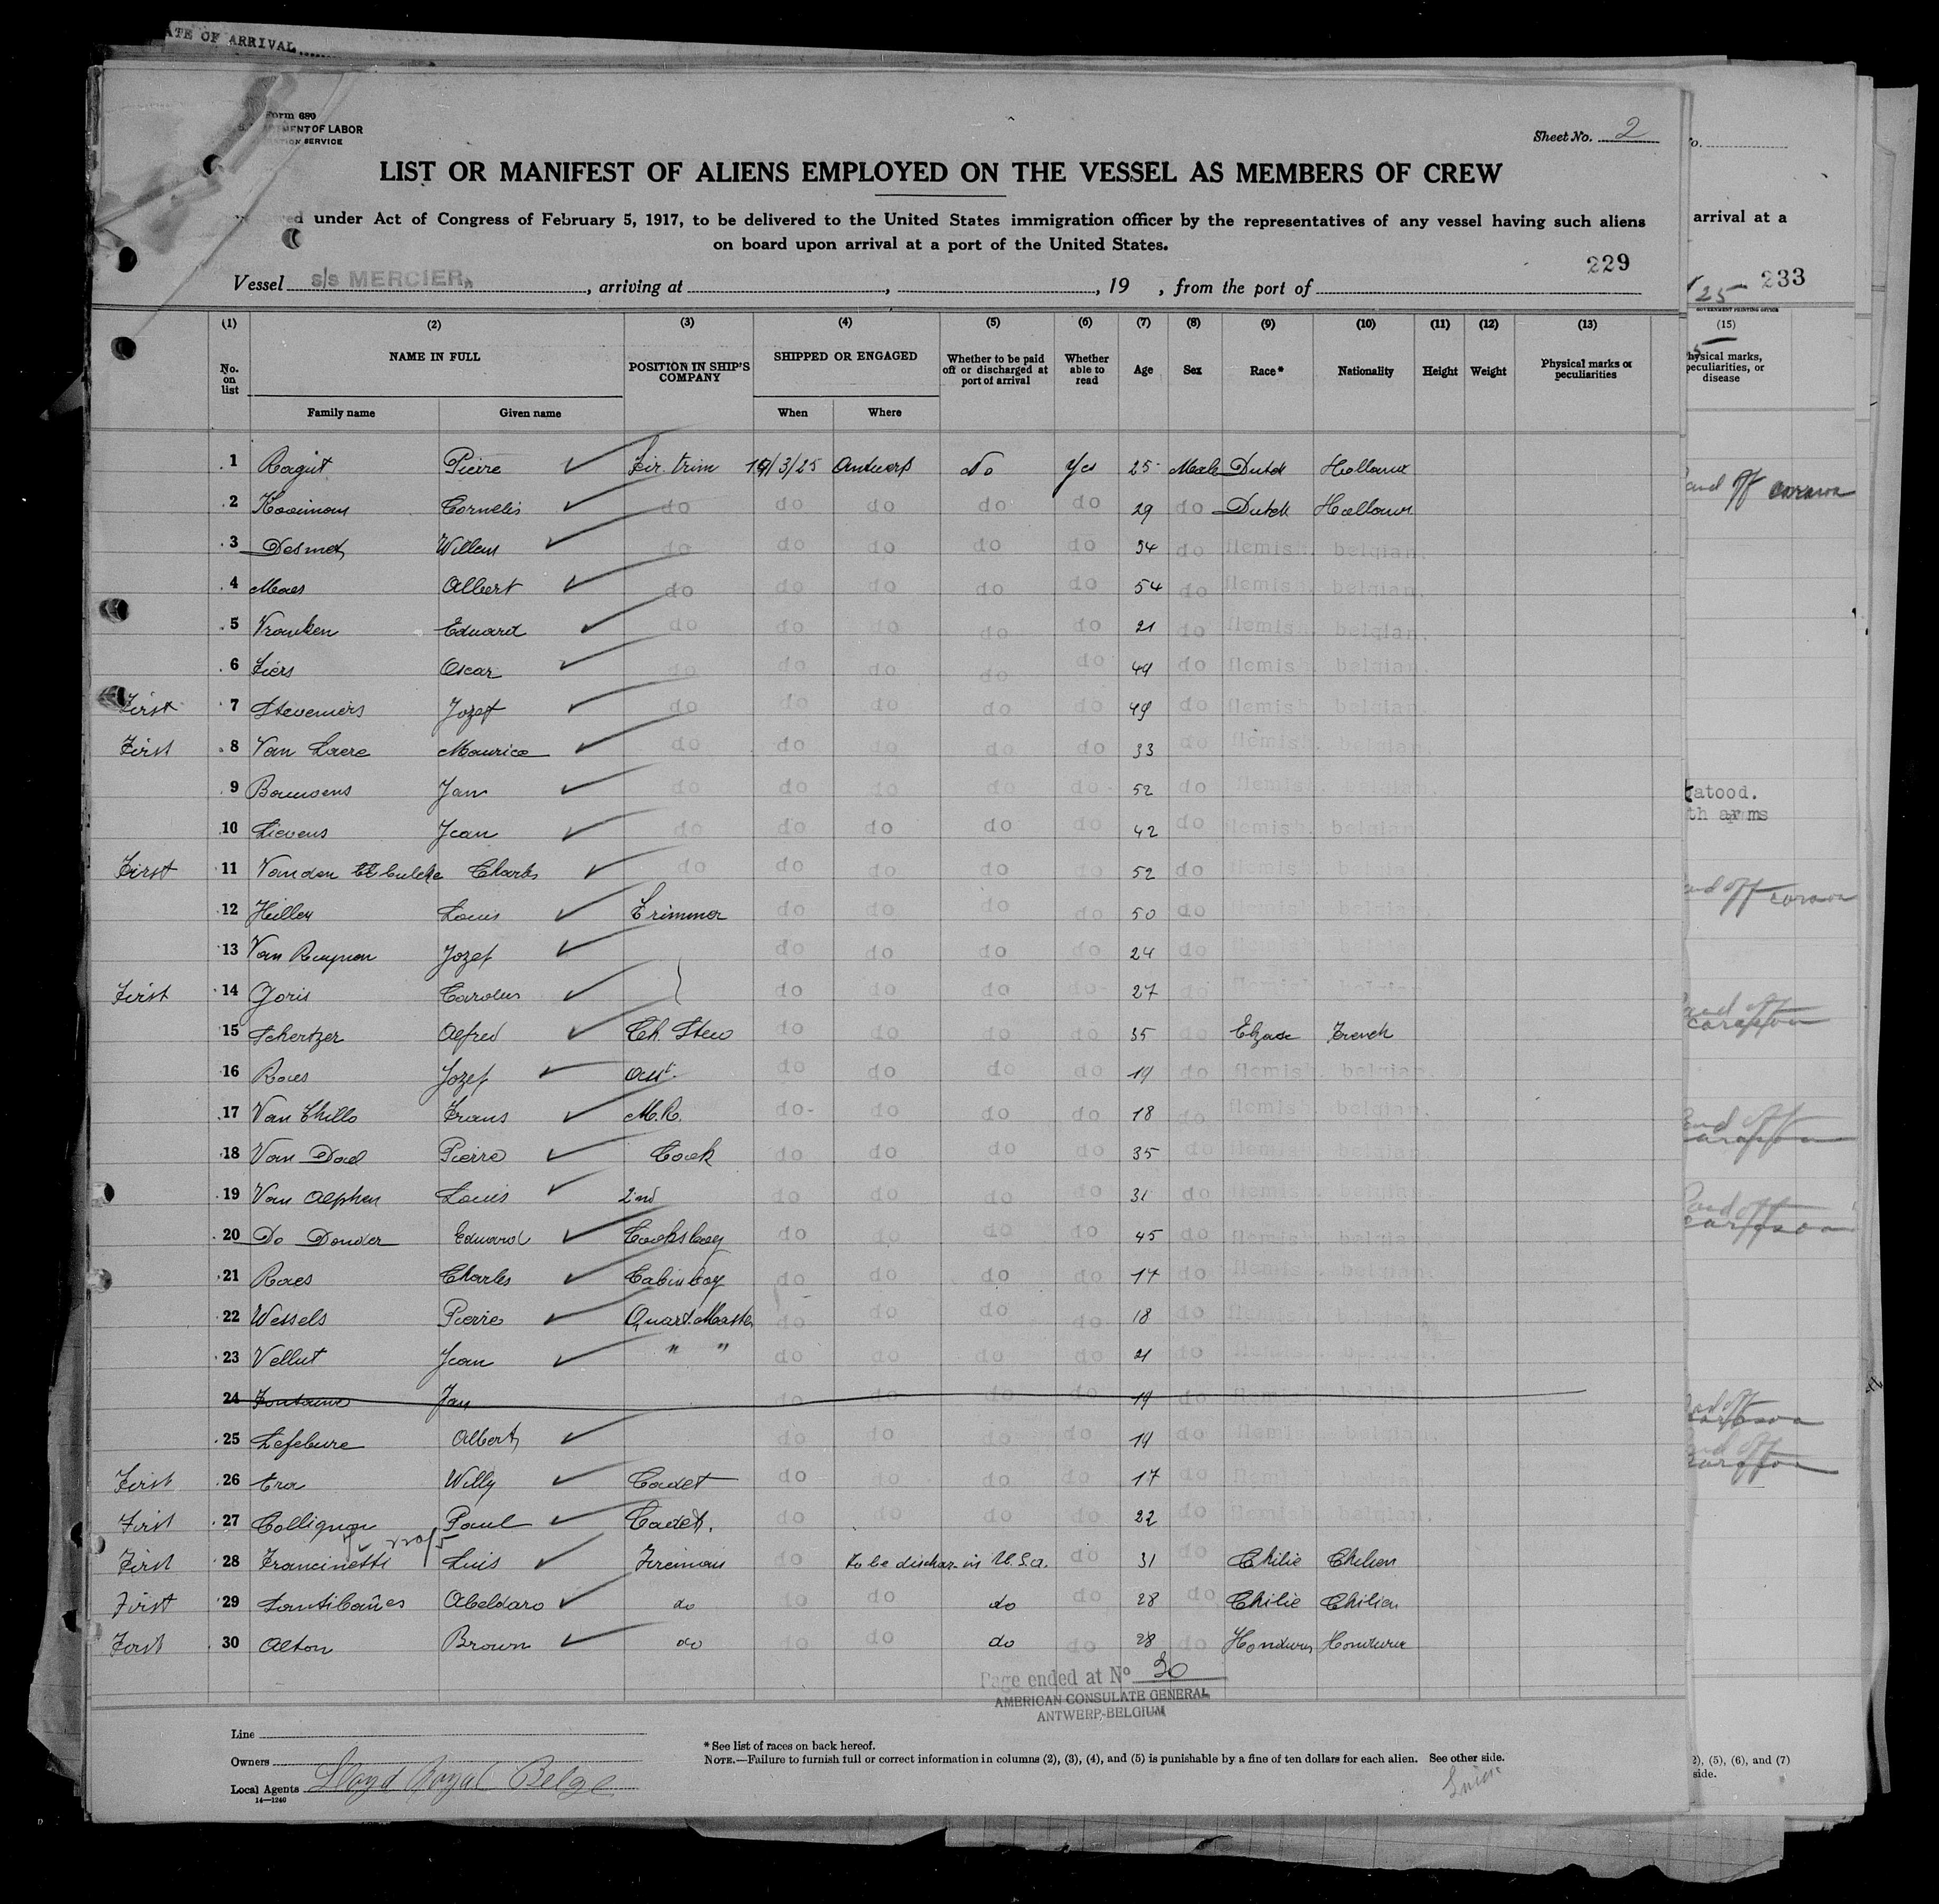 ATE OF ARRIVAL
Form 680
MENT OF LABOR
SERVICE
Sheet No. 2
LIST OR MANIFEST OF ALIENS EMPLOYED ON THE VESSEL AS MEMBERS OF CREW
under Act of Congress of February 5, 1917, to be delivered to the United States immigration officer by the representatives of any vessel having such aliens
on board upon arrival at a port of the United States.
arrival at a
229
233
25
Vessel s/s MERCIER, arriving at , , 19 , from the port of
(1) (2) (3) (4) (5) (6) (7) (8) (9) (10) (11) (12) (13)
No. on list NAME IN FULL POSITION IN SHIP'S COMPANY SHIPPED OR ENGAGED Whether to be paid off or discharged at port of arrival Whether able to read Age Sex Race* Nationality Height Weight Physical marks or peculiarities
Family name Given name When Where
(15)
physical marks,
peculiarities, or
disease
1 Ragut Pierre Fir. trim 19/3/25 Antwerp No Yes 25 Male Dutch
2 Kooiman Cornelis do do do do do 29 do Dutch
3 Desmet Willem do do do do do 34 do flemish. belgian.
4 Maes Albert do do do do do 54 do flemish. belgian.
5 Vranken Eduard do do do do do 21 do flemish. belgian.
6 Fiers Oscar do do do do do 49 do flemish. belgian.
First 7 Stevemirs Jozef do do do do do 49 do flemish. belgian.
First 8 Van Laere Maurice do do do do do 33 do flemish. belgian.
9 Bauwens Jan do do do do do 52 do flemish. belgian.
10 Lievens Jean do do do do do 42 do flemish. belgian.
First 11 Vanden Charles do do do do do 52 do flemish. belgian.
12 Louis Trimmer do do do do 50 do flemish. belgian.
13 Van Jozef do do do do 24 do flemish. belgian.
First 14 Joris Carolus do do do do 27 do flemish. belgian.
15 Schertzer Alfred Ch. Stew do do do do 35 do French
16 Roes Jozef Asst. do do do do 19 do flemish. belgian.
17 Van Thillo Frans M.R. do do do do 18 do flemish. belgian.
18 Van Dael Pierre Cook do do do do 35 do flemish. belgian.
19 Van Alphen Louis 2nd do do do do 31 do flemish. belgian.
20 De Donder Eduard Cooksboy do do do do 45 do flemish. belgian.
21 Roes Charles Cabinboy do do do do 17 do flemish. belgian.
22 Wessels Pierre Quart. Master do do do do 18 do flemish. belgian.
23 Vellut Jean " " do do do do 21 do flemish. belgian.
24 Fontaine Jan do do do do 19 do flemish. belgian.
25 Lefebure Albert do do do do 19 do flemish. belgian.
First 26 Willy Cadet do do do do 17 do flemish. belgian.
First 27 Collignon Paul Cadet. do do do do 22 do flemish. belgian.
First 28 Francinetti Luis Fireman do to be dischar. in U.S.A. do 31 do Chilie Chilien
First 29 Santibañes Abeldaro do do do do do 28 do Chilie Chilien
First 30 Alton Brown do do do do do 28 do Honduras
Page ended at No 30
AMERICAN CONSULATE GENERAL
ANTWERP-BELGIUM
Line
Owners
Local Agents Lloyd Royal Belge
14—1240
* See list of races on back hereof.
NOTE.—Failure to furnish full or correct information in columns (2), (3), (4), and (5) is punishable by a fine of ten dollars for each alien. See other side.
2), (5), (6), and (7)
side.